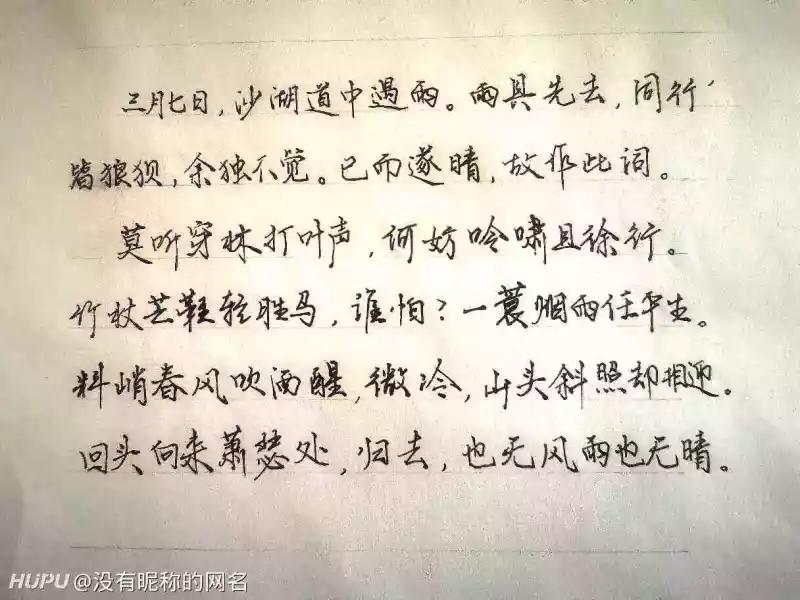 三月七日，沙湖道中遇雨。雨具先去，同行
皆狼狈，余独不觉。已而遂晴，故作此词。
莫听穿林打叶声，何妨吟啸且徐行。
竹杖芒鞋轻胜马，谁怕？一蓑烟雨任平生。
料峭春风吹酒醒，微冷，山头斜照却相迎。
回头向来萧瑟处，归去，也无风雨也无晴。
HUPU @没有昵称的网名